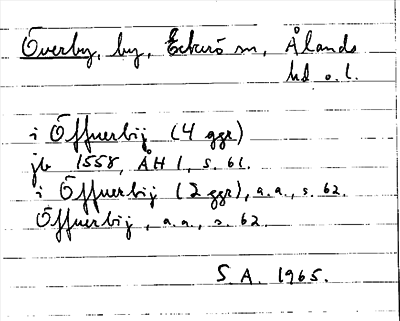 Överby, by, Eckerö sn, Ålands
hd o. l.
i Öffnerbij (4 ggr)
jb 1558, ÅH 1, s. 61.
i Öffnerbij (2 ggr), a.a., s. 62.
Öffnerbij, a.a., s. 62.
S.A. 1965.